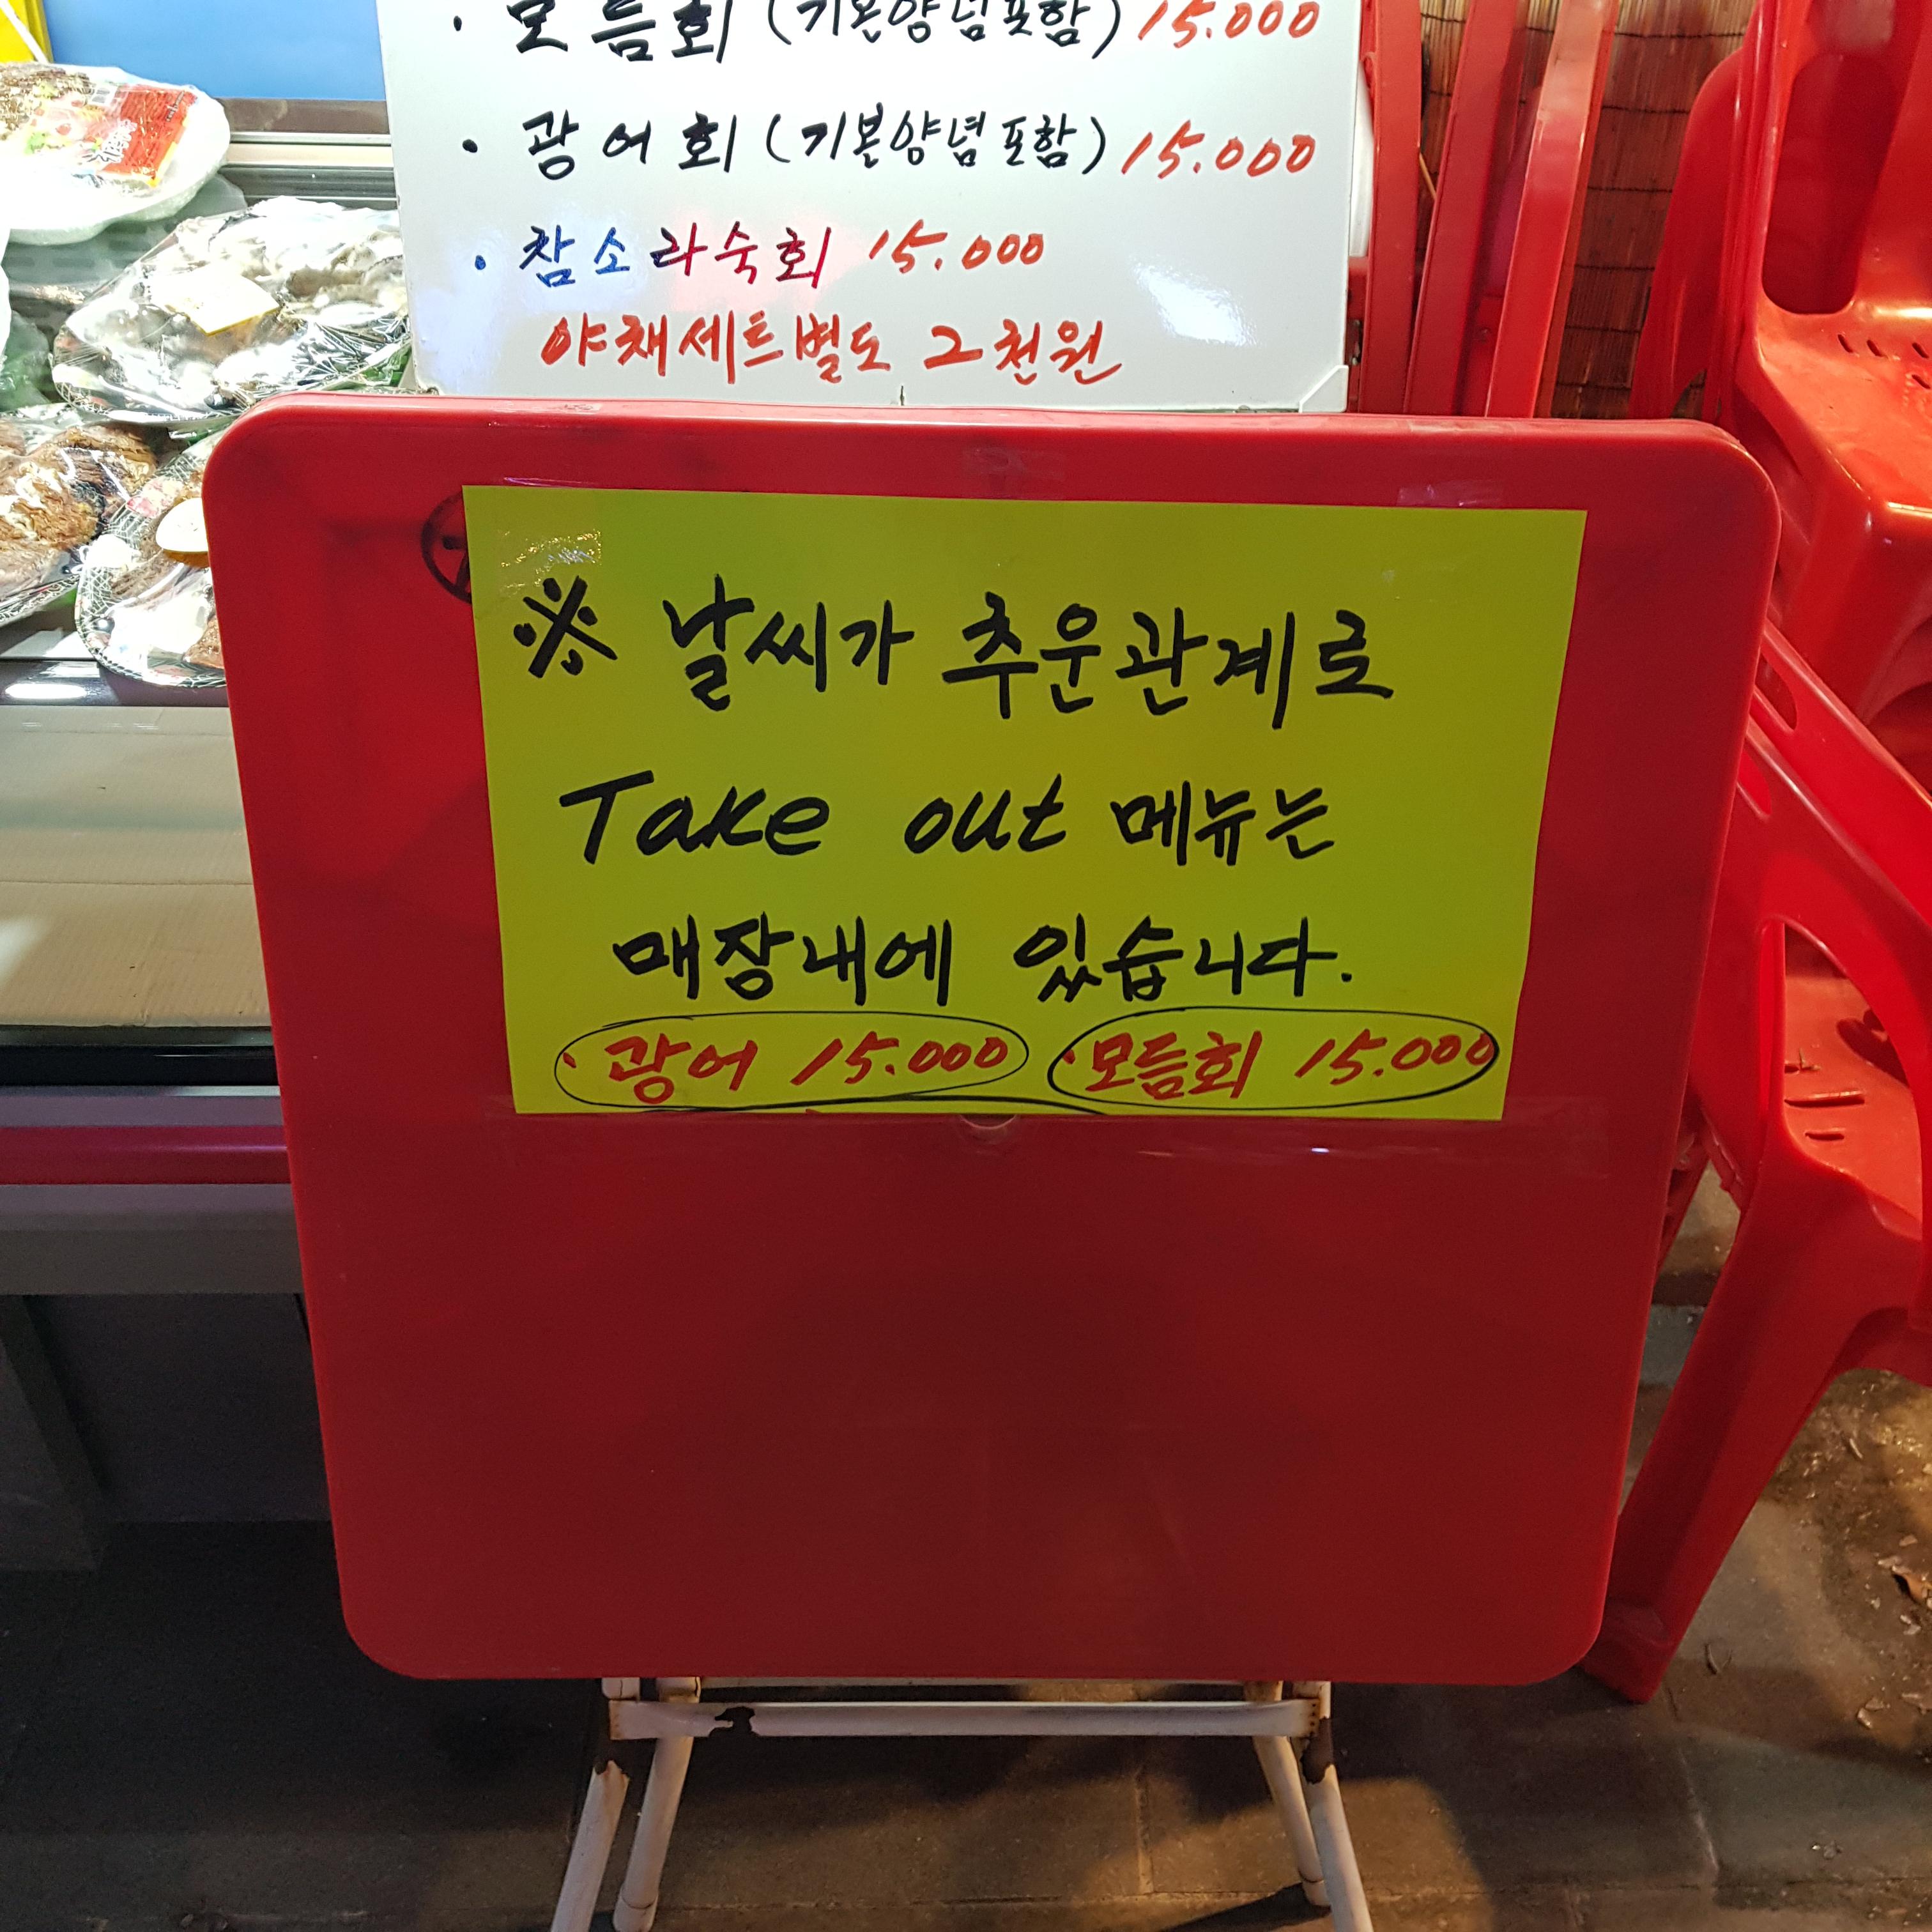 · 모듬회 (기본양념포함) 15.000
· 광어회 (기본양념포함) 15.000
· 참소라숙회 15.000
야채세트별도 2천원
※ 날씨가 추운관계로
Take out 메뉴는
매장내에 있습니다.
· 광어 15.000 · 모듬회 15.000